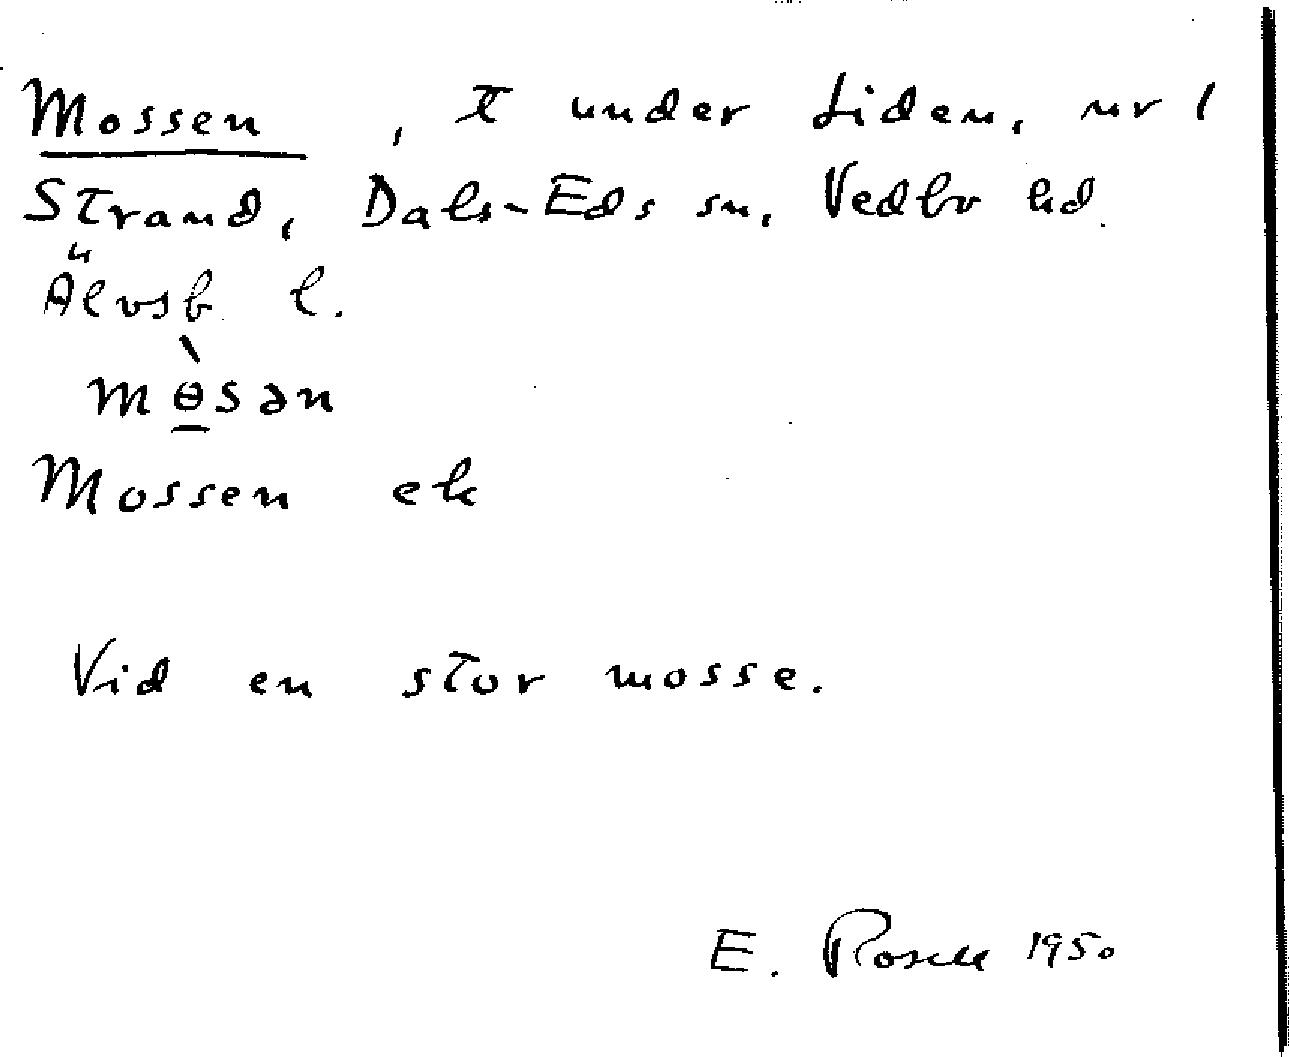 Mossen, t under Liden, nr 1
Strand, Dals-Eds sn, Vedbo hd.
Älvsb l.
mɵ̀sən
Mossen ek
Vid en stor mosse.
E. Rosell 1950